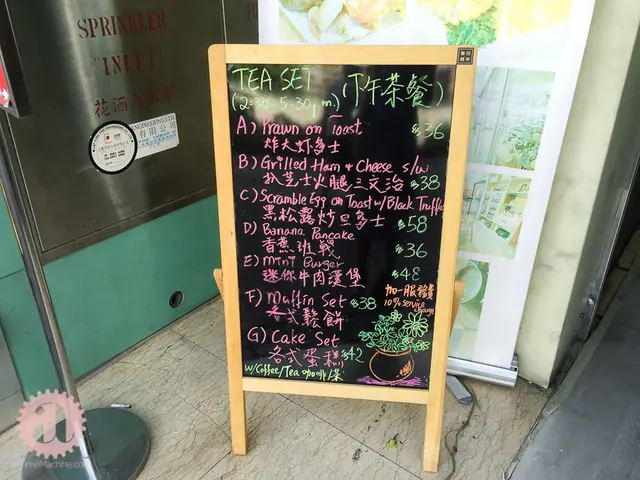 SPRINKLER
"INLET"
花洒入水掣
ENGINEERING LTD.
有限公司
TEA SET (下午茶餐)
(2:30-5:30p.m.)
A) Prawn on Toast $36
炸大虾多士
B) Grilled Ham & Cheese s/w
扒芝士火腿三文治 $38
C) Scramble Egg on Toast w/ Black Truffle
黑松露炒旦多士 $58
D) Banana Pancake
香蕉班戟 $36
E) Mini Burger
迷你牛肉漢堡 $48
F) Muffin Set $38
各式鬆餅
G) Cake Set
各式蛋糕 $42
w/Coffee/Tea 咖啡/茶
加一服務費
10% service
charge